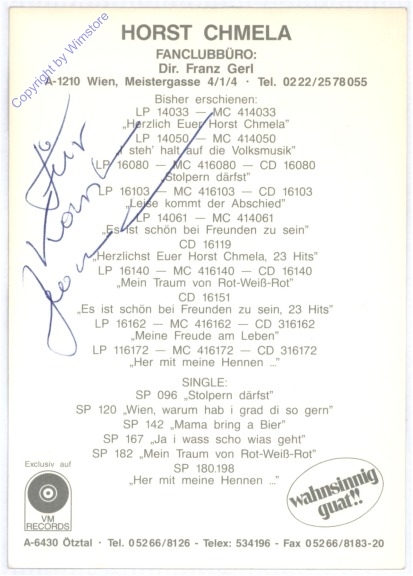 Copyright by Wimstore
HORST CHMELA
FANCLUBBÜRO:
Dir. Franz Gerl
A-1210 Wien, Meistergasse 4/1/4 · Tel. 0222/2578055
Bisher erschienen:
LP 14033 — MC 414033
„Herzlich Euer Horst Chmela"
LP 14050 — MC 414050
„I steh' halt auf die Volksmusik"
LP 16080 — MC 416080 — CD 16080
„Stolpern därfst"
LP 16103 — MC 416103 — CD 16103
„Leise kommt der Abschied"
LP 14061 — MC 414061
„Es ist schön bei Freunden zu sein"
CD 16119
„Herzlichst Euer Horst Chmela, 23 Hits"
LP 16140 — MC 416140 — CD 16140
„Mein Traum von Rot-Weiß-Rot"
CD 16151
„Es ist schön bei Freunden zu sein, 23 Hits"
LP 16162 — MC 416162 — CD 316162
„Meine Freude am Leben"
LP 116172 — MC 416172 — CD 316172
„Her mit meine Hennen ..."
SINGLE:
SP 096 „Stolpern därfst"
SP 120 „Wien, warum hab i grad di so gern"
SP 142 „Mama bring a Bier"
SP 167 „Ja i wass scho wias geht"
SP 182 „Mein Traum von Rot-Weiß-Rot"
SP 180.198
„Her mit meine Hennen ..."
Exclusiv auf
VM
RECORDS
wahnsinnig
guat!!
A-6430 Ötztal · Tel. 05266/8126 - Telex: 534196 - Fax 05266/8183-20